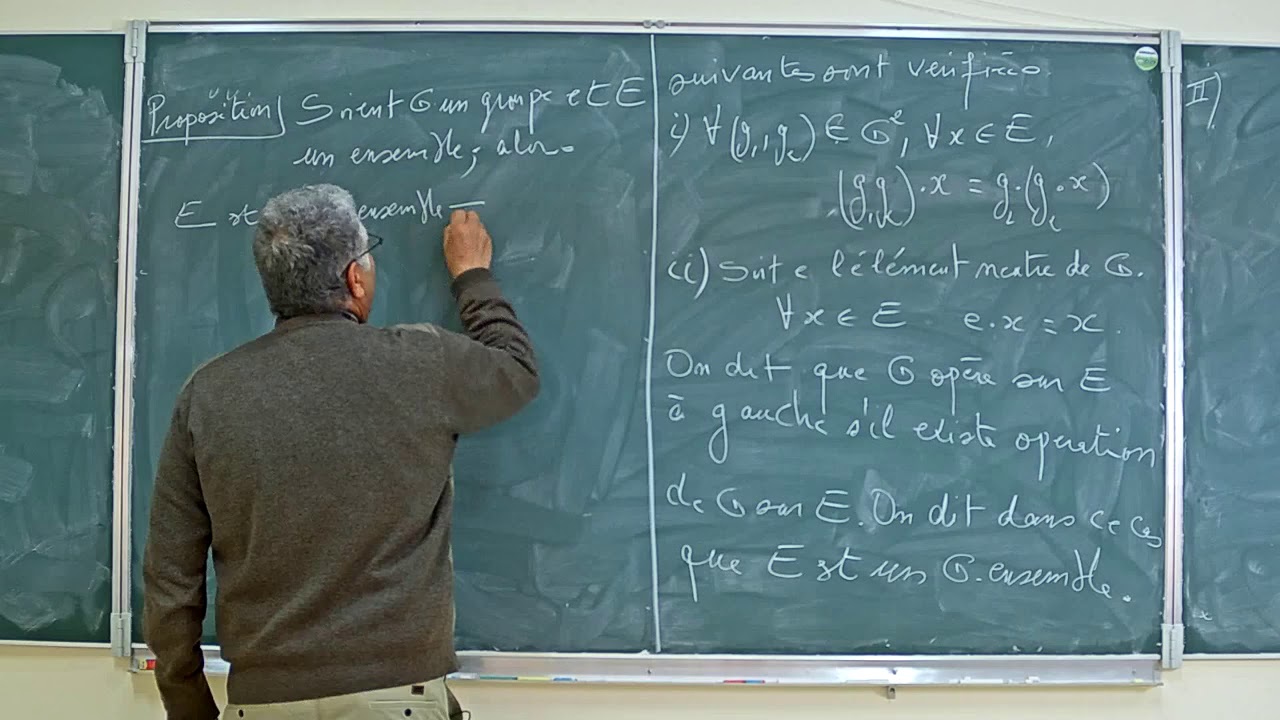 Proposition) Soient G un groupe et E
un ensemble; alors
E est ensemble
suivantes sont vérifiées
i) ∀(g₁,g₂) ∈ G², ∀x ∈ E,
(g₁g₂)·x = g₁·(g₂·x)
ii) Soit e l'élément neutre de G.
∀x ∈ E e.x = x.
On dit que G opère sur E
à gauche s'il existe operation
de G sur E. On dit dans ce cas
que E est un G.ensemble.
II)